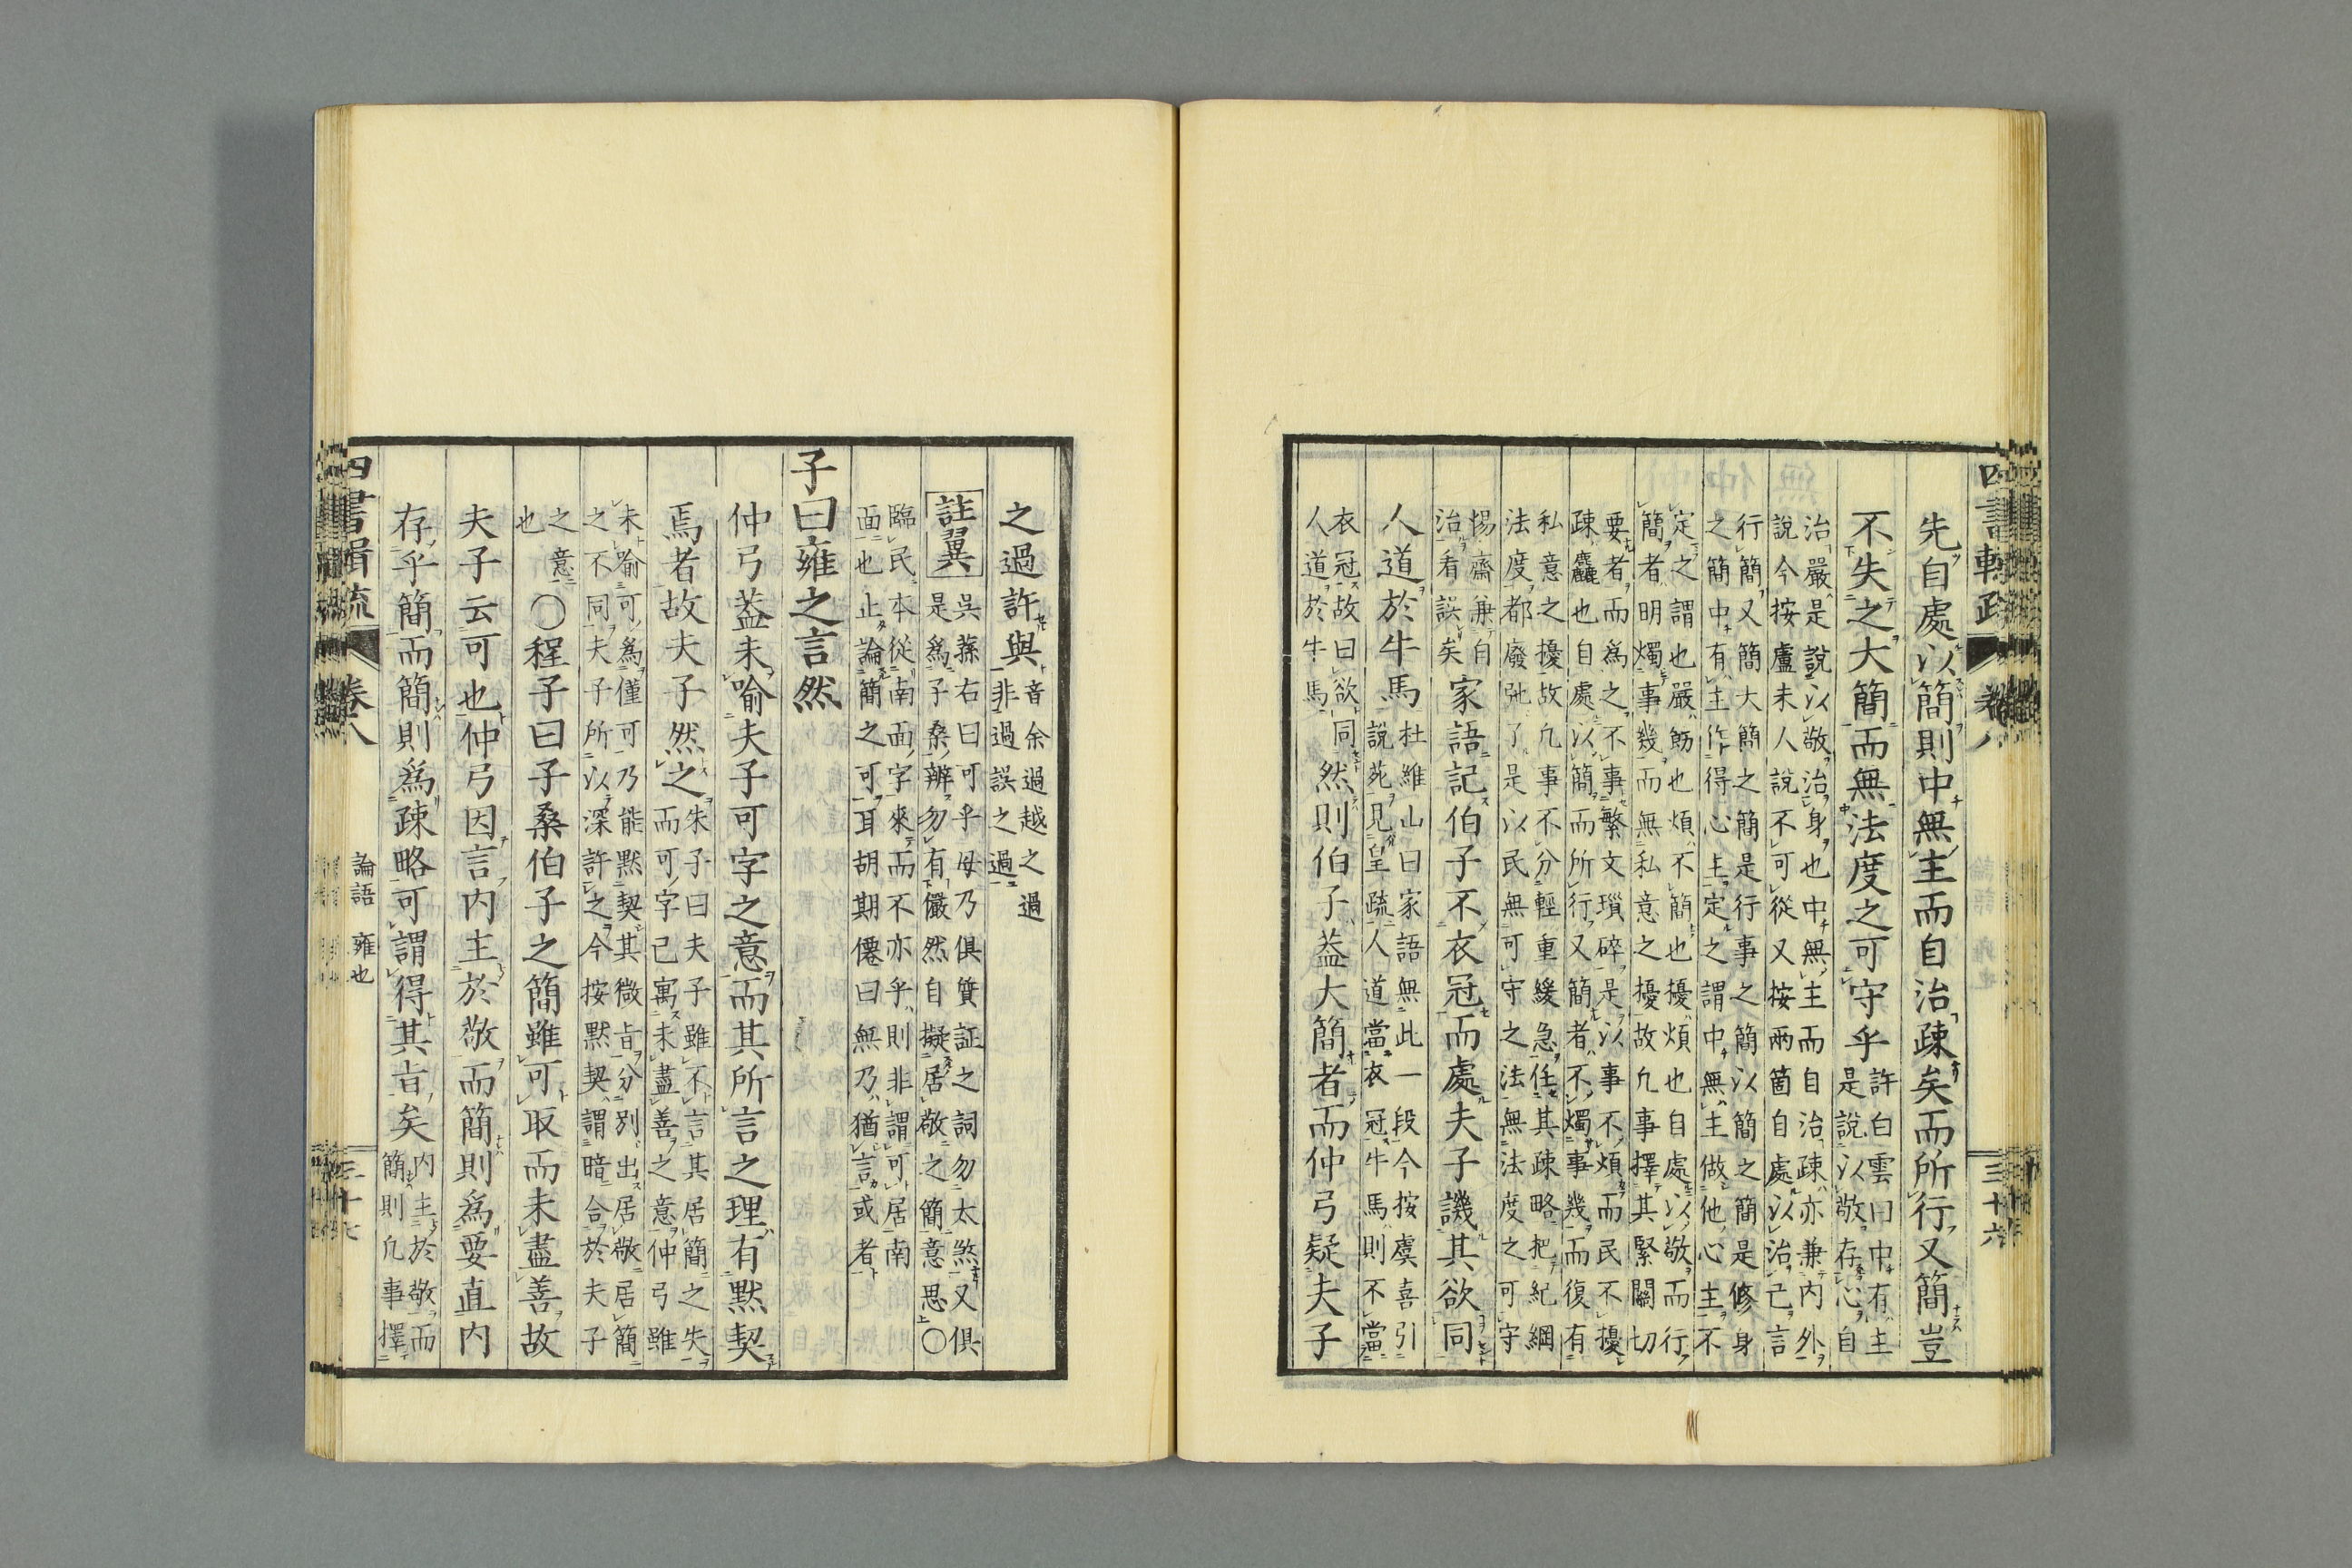 先自處以簡則中無主而自治疎矣而所行又簡豈
不失之大簡而無法度之可守乎
許白雲曰中有主
是說以敬存心自
治嚴是說以敬治身也中無主而自治疎亦兼內外
說今按盧未人說不可從又按兩箇自處以治己言
行簡又簡大簡之簡是行事之簡以簡之簡是修身
之簡中有主作得心主定之謂中無主做他心主不
定之謂也嚴飭也煩不簡也擾煩也自處以敬而行
簡者明燭事幾而無私意之擾故凡事擇其緊關切
要者而為之不事繁文瑣碎是以事不煩而民不擾
疎麤也自處以簡而所行又簡者不燭事幾而復有
私意之擾故凡事不分輕重緩急任其疎略把紀綱
法度都廢弛了是以民無可守之法無法度之可守
楊齋兼自
治看誤矣
家語記伯子不衣冠而處夫子譏其欲同
人道於牛馬
杜維山曰家語無此一段今按虞喜引
說苑見皇疏人道當衣冠牛馬則不當
衣冠故曰欲同
人道於牛馬
然則伯子蓋大簡者而仲弓疑夫子
四書輯疏 卷八 三十六
之過許與
音余過越之過
非過誤之過
註翼
吳蓀右曰可乎毋乃俱質証之詞勿太煞又俱
是為子桑辨勿有儼然自擬居敬之簡意思○
臨民本從南面字來而不亦乎則非謂可居南
面也止論簡之可耳胡期僊曰無乃猶言或者
子曰雍之言然
仲弓蓋未喻夫子可字之意而其所言之理有默契
焉者故夫子然之
朱子曰夫子雖不言其居簡之失
而可字已寓未盡善之意仲弓雖
未喻可為僅可乃能默契其微旨分別出居敬居簡
之不同夫子所以深許之今按默契謂暗合於夫子
之意
也
○程子曰子桑伯子之簡雖可取而未盡善故
夫子云可也仲弓因言內主於敬而簡則為要直內
存乎簡而簡則為疎略可謂得其旨矣
內主於敬而
簡則凡事擇
四書輯疏 卷八 論語 雍也 三十七